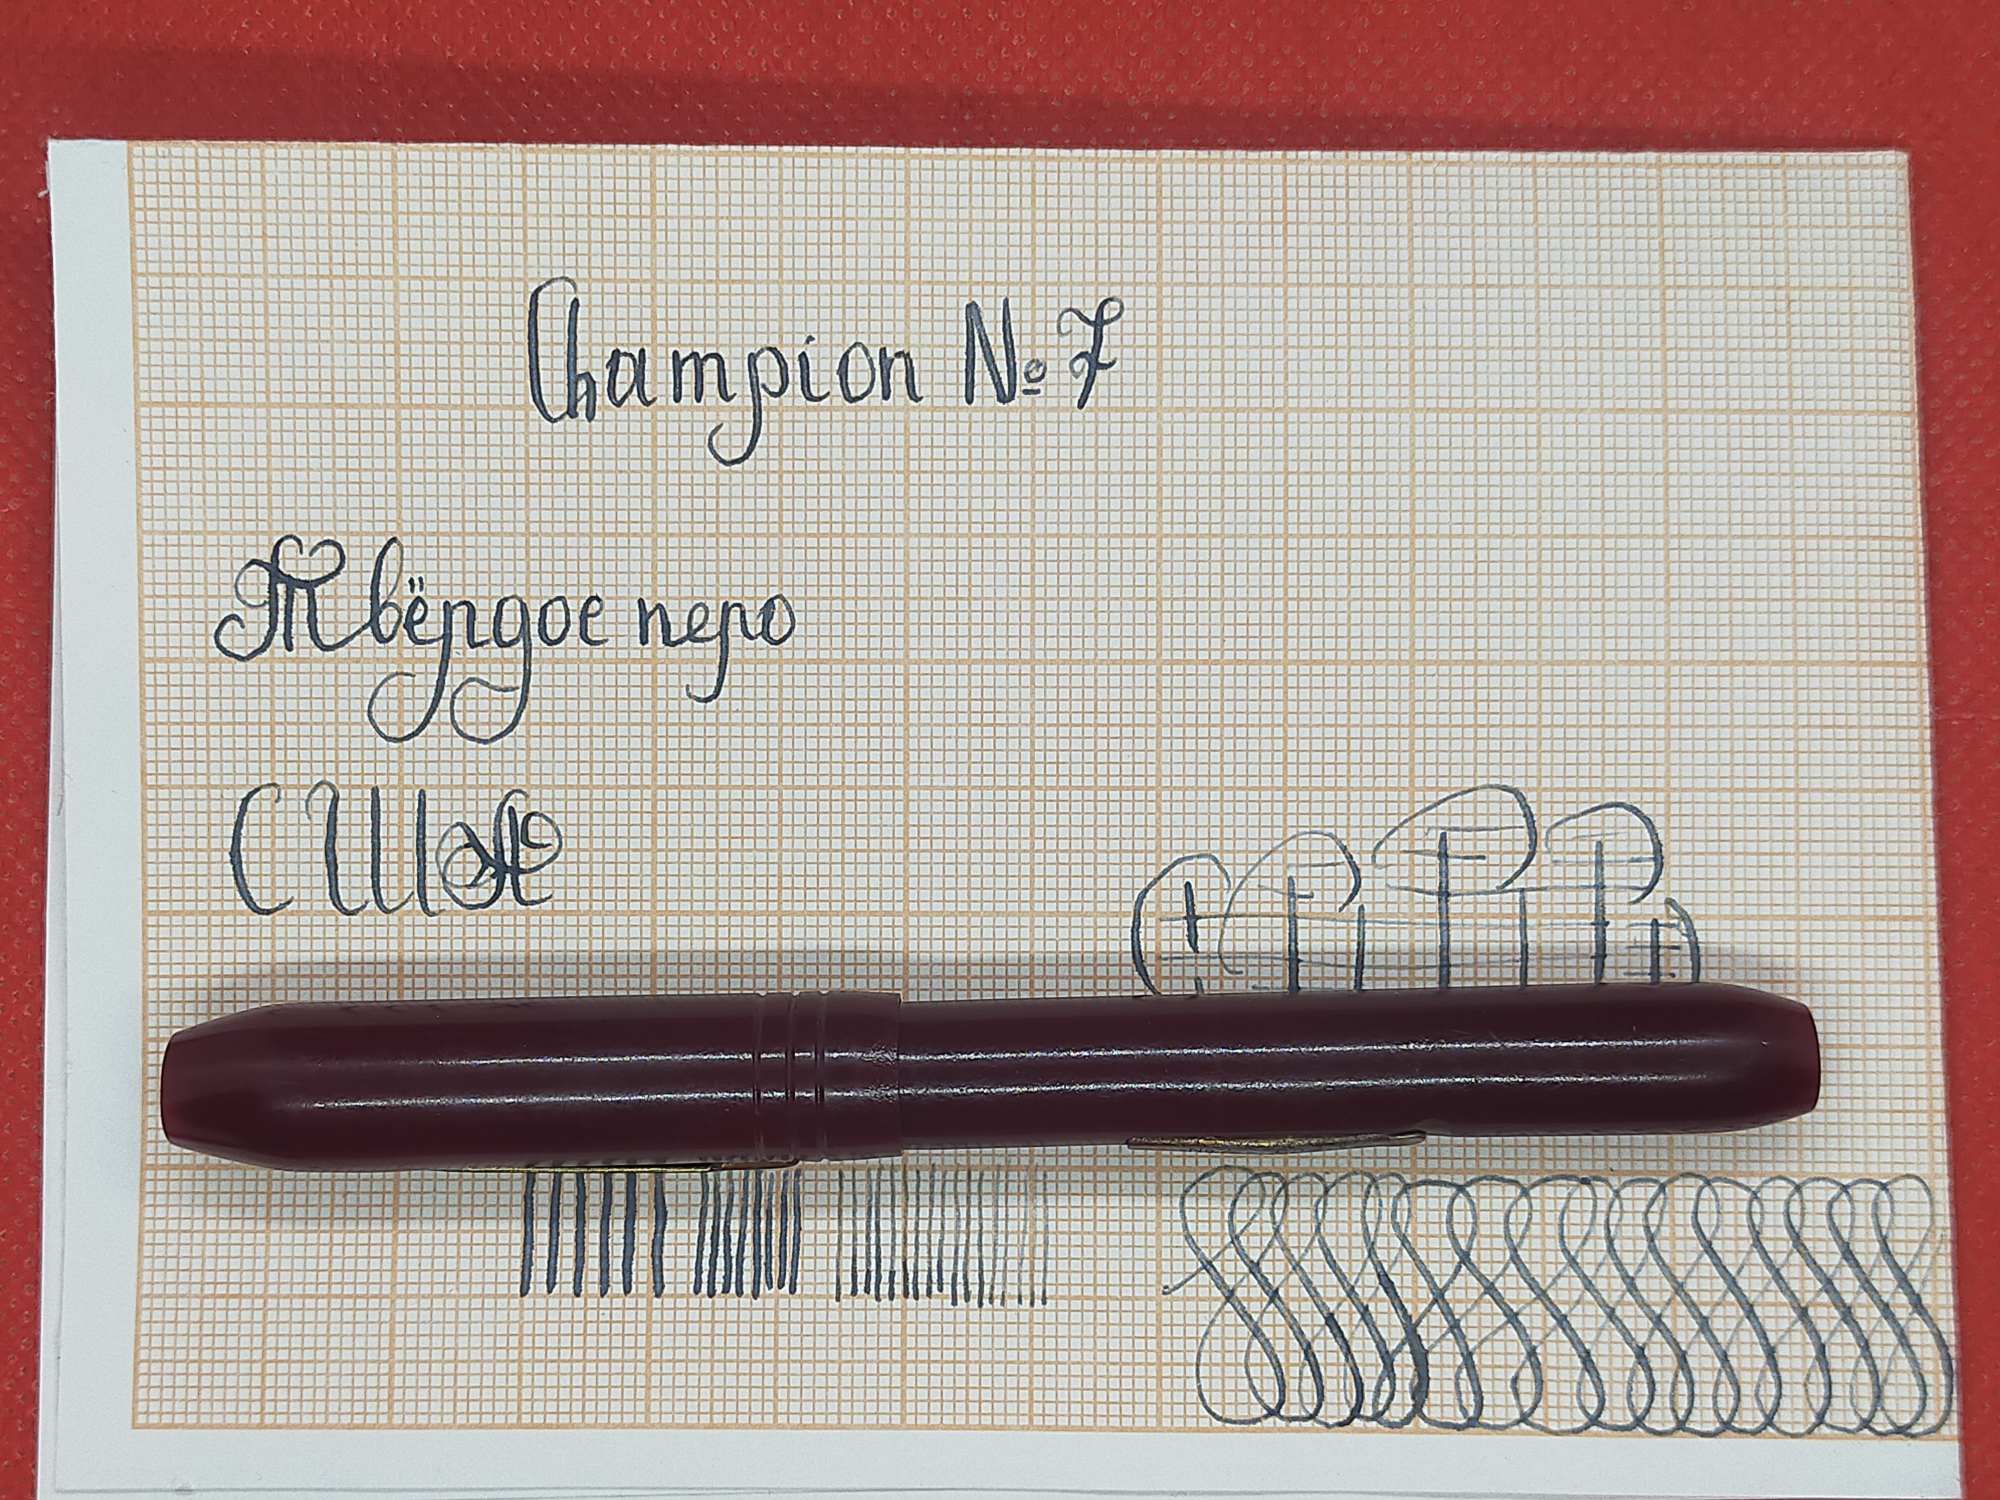 Champion № 7
Твёрдое перо
США